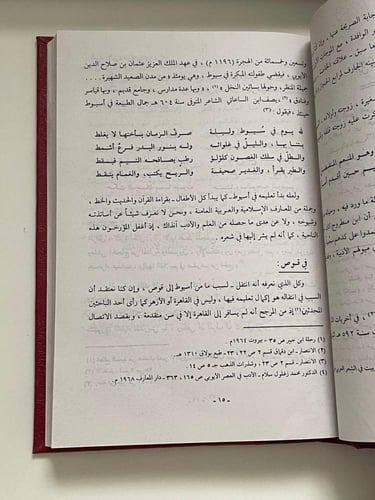 وتسعين وخمسمائة من الهجرة (١١٩٦ م) ، في عهد الملك العزيز عثمان بن صلاح الدين
الأيوبي ، فيقضي طفولته المبكرة في سيوط ، وهي يومئذ « من مدن الصعيد الشهيرة ....
جميلة المنظر ، وحولها بساتين النخل »(١) ، وبها عدة مدارس ، وجامع قديم ، وبها قياسر
وفنادق »(٢) ، يصف ابن الساعاتي الشاعر المتوفى سنة ٦٠٤ هـ جمال الطبيعة في أسيوط
حينئذ ، فيقول : (٣)
لله يوم في سيوط وليلة
صرف الزمان بأختها لا يغلط
بتنا بها ، والليل في غلوائه
وله بنور البدر فرع أشمط
والطل في سلك الغصون كلؤلؤ
رطب يصافحه النسيم فيلقط
والطير يقرأ ، والغدير صحيفة
والريح يكتب ، والغمام ينقط
ولعله بدأ تعليمه في أسيوط - كما يبدأ كل الأطفال - بقراءة القرآن والحديث والخط ،
وجملة من المعارف الإسلامية والعربية العامة ، ونحن لا نعرف شيئاً عن أساتذته
وشيوخه ، ولا عن مدى ما حصله من العلم والأدب آنذاك ، إذ أغفل المؤرخون هذه
الناحية ، كما أنه لم يشر إليها في شعره .
في قوص :
وكل الذي نعرفه أنه انتقل - لسبب ما من أسيوط إلى قوص ، وإن كنا نعتقد أن
السبب في انتقاله هو إكمال تعليمه فيها ، وليس في القاهرة أو الأزهر كما رأى أحد الباحثين
المحدثين(٤) إذ من المرجح أنه لم يسافر إلى القاهرة إلا في سن متقدمة ، وبقصد الاتصال
(١) رحلة ابن جبير ص ٣٥ - بيروت ١٩٦٤ م .
(٢) الانتصار - ابن دقماق قسم ٢ ص ٢٢ ، ٢٣ - طبع بولاق ١٣١٠ هـ .
(٣) الانتصار - قسم ٢ ص ٢٣ ، وشذرات الذهب جـ ٥ ص ١٤ .
(٤) الدكتور محمد زغلول سلام - الأدب في العصر الأيوبي ص ١٦٥ ، ٣٦٣ - دار المعارف ١٩٦٨ م .
- ١٥ -